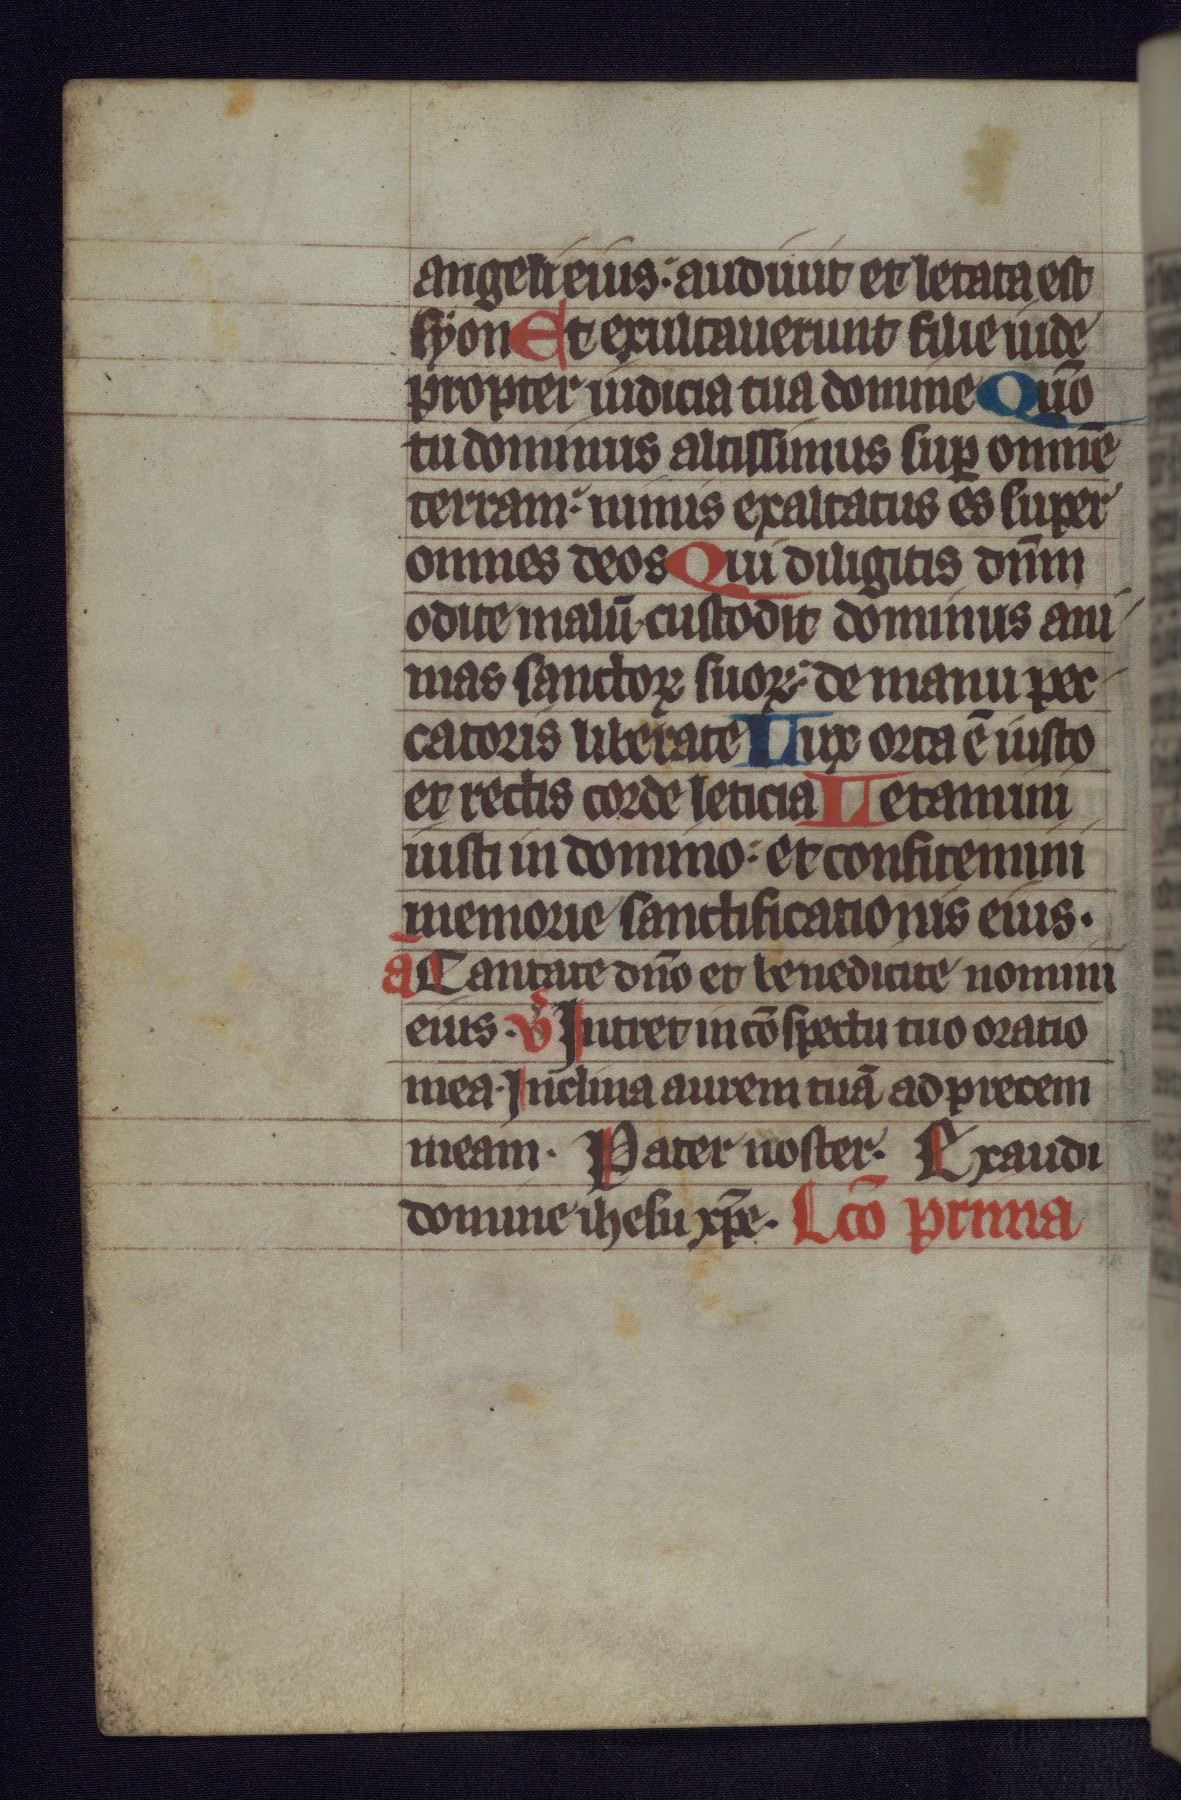 angeli eius: audiuit et letata est
syon Et exultauerunt filie iude
propter iudicia tua domine Quō
tu dominus altissimus suꝑ omnē
terram: nimis exaltatus es super
omnes deos Qui diligitis dn̄m
odite malū custodit dominus ani
mas sanctoꝝ suoꝝ: de manu pec
catoris liberate Lux orta ē iusto
et rectis corde leticia Letamini
iusti in domino: et confitemini
memorie sanctificationis eius.
ā Cantate dn̄o et benedicite nomini
eius. v̄ Intret in cōspectu tuo oratio
mea. Inclina aurem tuā ad precem
meam. Pater noster. Exaudi
domine ihesu xp̄e. Lcō prima